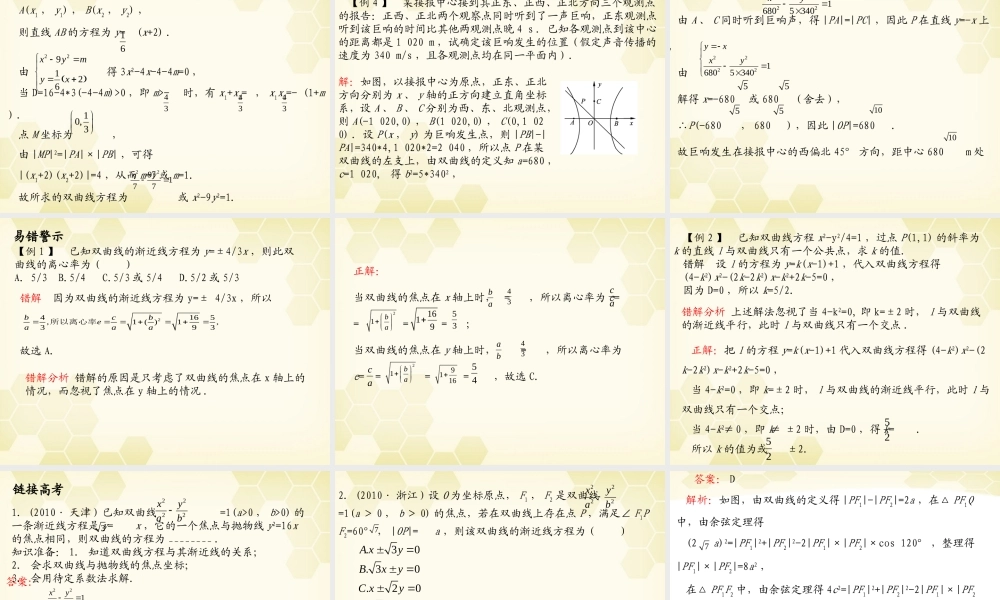 A(x₁ , y₁) , B(x₂ , y₂) ,
则直线 AB 的方程为 y= 1/6 (x+2) .
由 { x²-9y²=m  y=1/6(x+2) 得 3x²-4x-4-4m=0 ,
当 D=16-4*3(-4-4m)>0 , 即 m>- 4/3 时, 有 x₁+x₂= 4/3 , x₁x₂=- 4/3 (1+m
) .
点 M 坐标为 (0,1/3) ,
由 |MP|²=|PA|×|PB| , 可得
|(x₁+2)(x₂+2)|=4 , 从而 m=7 或 m=1.
故所求的双曲线方程为 或 x²-9y²=1.
【例 4 】 某接报中心接到其正东、正西、正北方向三个观测点
的报告: 正西、正北两个观察点同时听到了一声巨响, 正东观测点
听到该巨响的时间比其他两观测点晚 4 s . 已知各观测点到该中心
的距离都是 1 020 m , 试确定该巨响发生的位置 ( 假定声音传播的
速度为 340 m/s , 且各观测点均在同一平面内 ) .
解: 如图, 以接报中心为原点, 正东、正北
方向分别为 x 、 y 轴的正方向建立直角坐标
系, 设 A 、 B 、 C 分别为西、东、北观测点,
则 A(-1 020,0) , B(1 020,0) , C(0,1 02
0) . 设 P(x , y) 为巨响发生点, 则 |PB|-|
PA|=340*4,1 020*2=2 040 , 所以点 P 在某
双曲线的左支上, 由双曲线的定义知 a=680 ,
c=1 020, 得 b²=5*340² ,
y
P
C
A
O
B
x
680² 5×340² =1
由 A 、 C 同时听到巨响声, 得 |PA|=|PC| , 因此 P 在直线 y=-x 上
,
由 { y=-x  x²/680² - y²/5×340² =1
解得 x=-680√5 或 680√5 ( 含去 ) ,
∴P(-680√5 , 680√5 ) , 因此 |OP|=680√10 .
故巨响发生在接报中心的西偏北 45° 方向, 距中心 680√10 m 处
易错警示
【例 1 】 已知双曲线的渐近线方程为 y=±4/3x , 则此双
曲线的离心率为 ( )
A. 5/3 B.5/4 C.5/3 或 5/4 D.5/2 或 5/3
错解 因为双曲线的渐近线方程为 y=± 4/3x , 所以
b/a=4/3,所以离心率e=c/a=√(1+(b/a)²)=√(1+16/9)=5/3.
故选 A.
错解分析 错解的原因是只考虑了双曲线的焦点在 x 轴上的
情况, 而忽视了焦点在 y 轴上的情况 .
正解:
当双曲线的焦点在 x 轴上时, b/a = 4/3 , 所以离心率为 c/a =
= √(1+(b/a)²) = √(1+16/9) = 5/3 ;
当双曲线的焦点在 y 轴上时, a/b = 4/3 , 所以离心率为
e= c/a = √(1+(b/a)²) = √(1+9/16) = 5/4 , 故选 C.
【例 2 】 已知双曲线方程 x²-y²/4=1 , 过点 P(1,1) 的斜率为
k 的直线 l 与双曲线只有一个公共点, 求 k 的值.
错解 设 l 的方程为 y=k(x-1)+1 , 代入双曲线方程得
(4-k²)x²-(2k-2k²)x-k²+2k-5=0 ,
因为 D=0 , 所以 k=5/2.
错解分析 上述解法忽视了当 4-k²=0, 即 k=±2 时, l 与双曲线
的渐近线平行, 此时 l 与双曲线只有一个交点 .
正解: 把 l 的方程 y=k(x-1)+1 代入双曲线方程得 (4-k²)x²-(2
k-2k²)x-k²+2k-5=0 ,
当 4-k²=0 , 即 k=±2 时, l 与双曲线的渐近线平行, 此时 l 与
双曲线只有一个交点;
当 4-k²≠0 , 即 k≠ ±2 时, 由 D=0 , 得 k= 5/2 .
所以 k 的值为 5/2 或 ±2.
链接高考
1. (2010 · 天津 ) 已知双曲线 x²/a² - y²/b² =1(a>0 , b>0) 的
一条渐近线方程是 y=√3 x , 它的一个焦点与抛物线 y²=16x
的焦点相同, 则双曲线的方程为 ________.
知识准备: 1. 知道双曲线方程与其渐近线的关系;
2. 会求双曲线与抛物线的焦点坐标;
3. 会用待定系数法求解.
答案:
x² y² =1
2. (2010 · 浙江 ) 设 O 为坐标原点, F₁ , F₂ 是双曲线 x²/a² - y²/b²
=1(a > 0 , b > 0) 的焦点, 若在双曲线上存在点 P , 满足∠ F₁P
F₂=60° , |OP|=√7 a , 则该双曲线的渐近线方程为 ( )
A.x±√3y=0
B.√3x±y=0
C.x±√2y=0
答案: D
解析: 如图, 由双曲线的定义得 |PF₁|-|PF₂|=2a , 在△ PF₁Q
中, 由余弦定理得
(2√7 a)²=|PF₁|²+|PF₂|²-2|PF₁|×|PF₂|×cos 120° , 整理得
|PF₁|×|PF₂|=8a² ,
在△ PF₁F₂ 中, 由余弦定理得 4c²=|PF₁|²+|PF₂|²-2|PF₁|×|PF₂